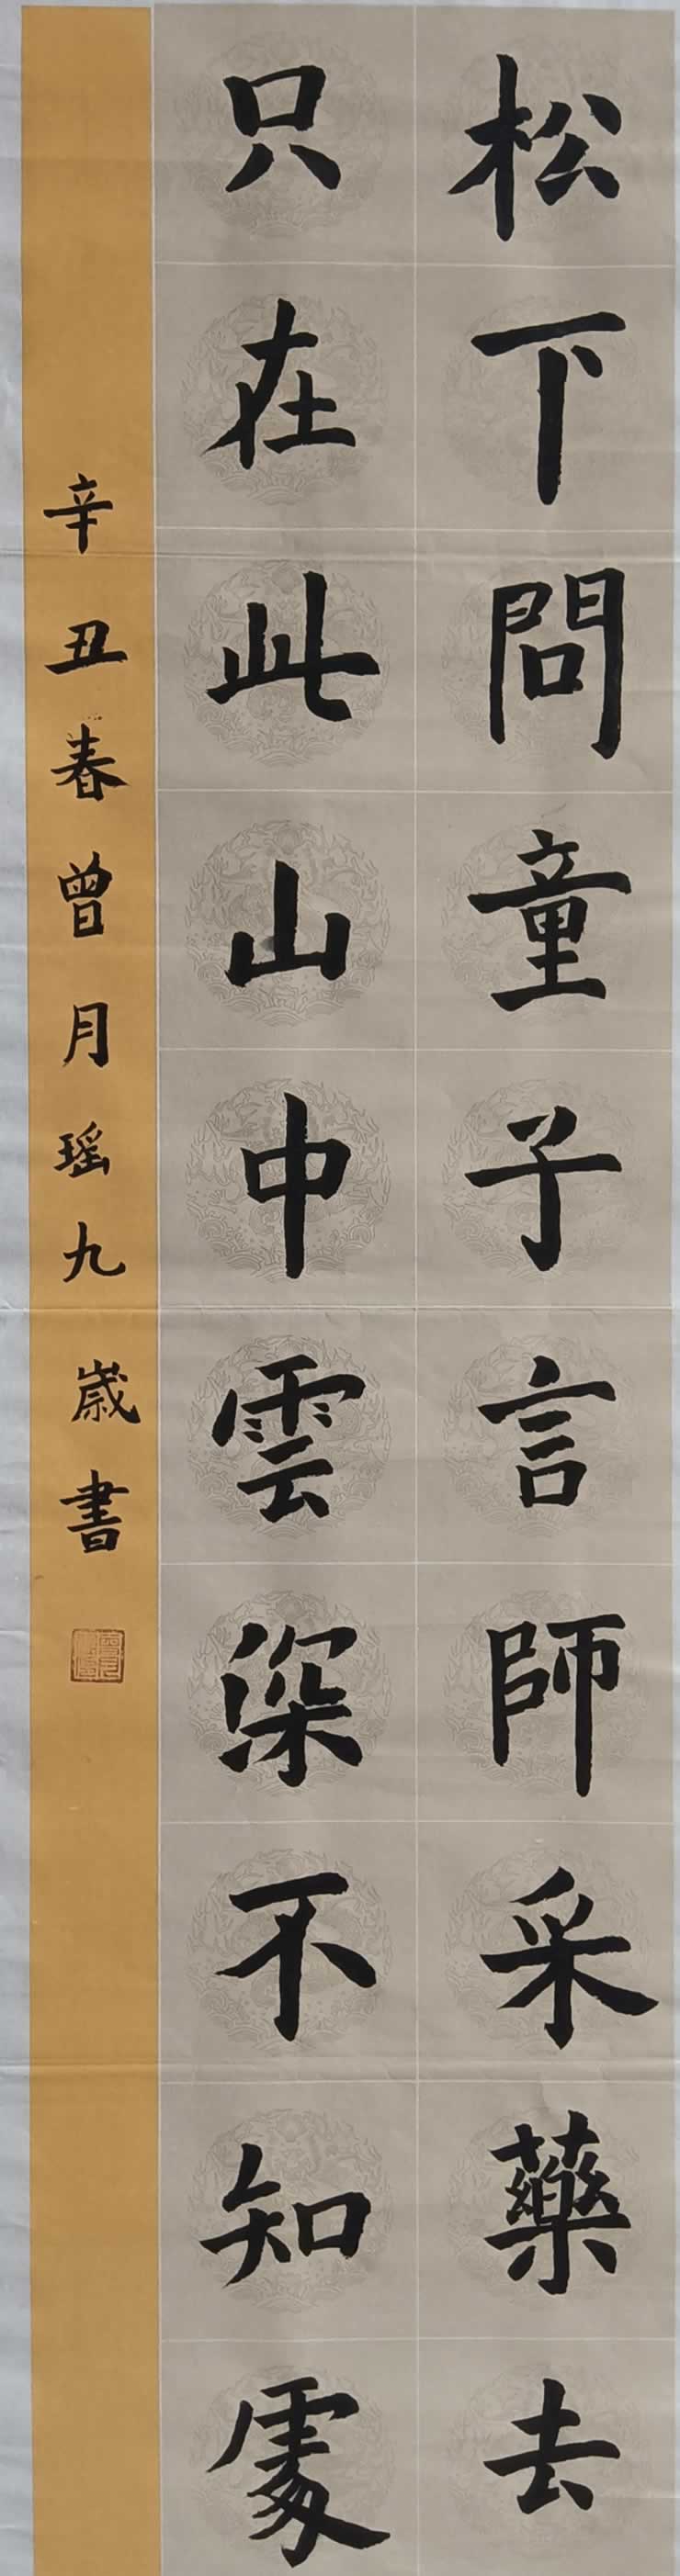 松下問童子言師采藥去
只在此山中雲深不知處
辛丑春曾月瑶九歲書